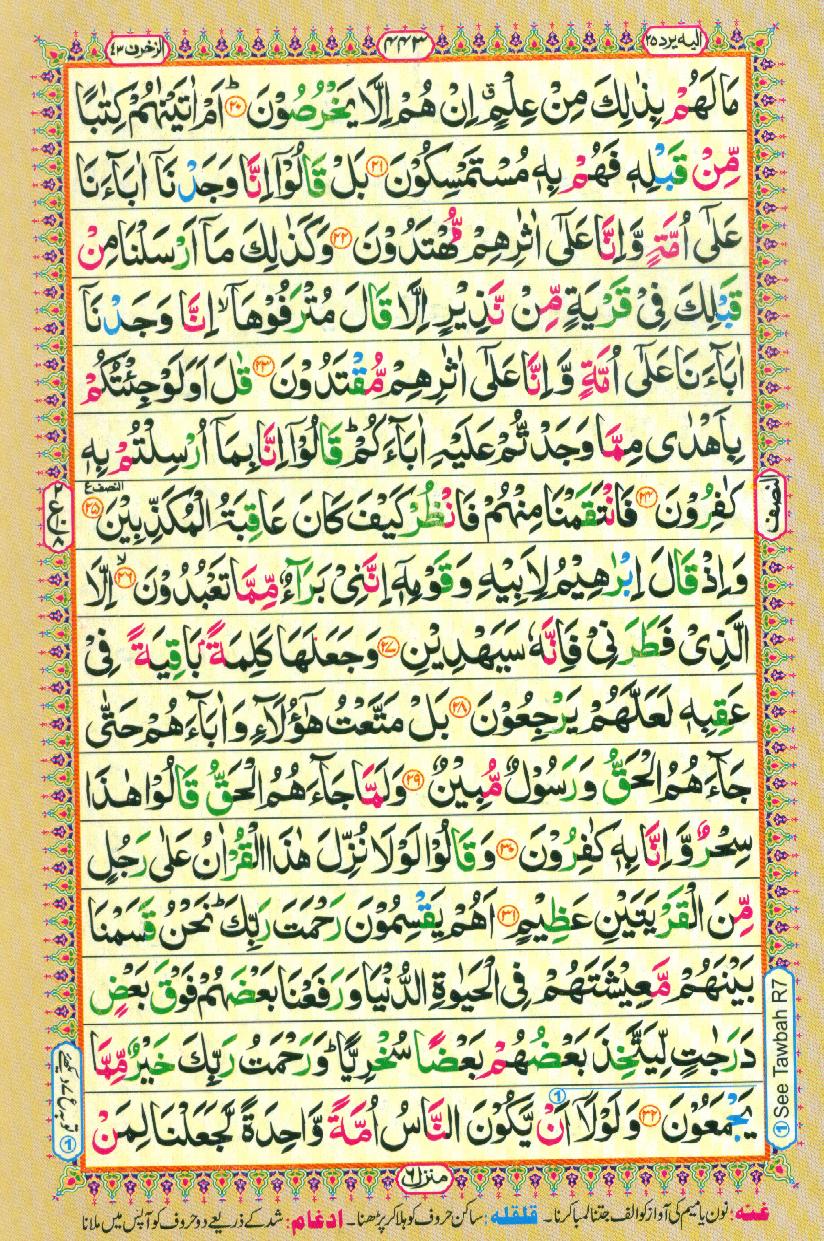 الیہ یرد ۲۵
۴۴۳
الزخرف ۴۳
مَا لَهُمْ بِذٰلِكَ مِنْ عِلْمٍ ۗ اِنْ هُمْ اِلَّا يَخْرُصُوْنَ ؕ ﴿۲۰﴾ اَمْ اٰتَيْنٰهُمْ كِتٰبًا
مِّنْ قَبْلِهٖ فَهُمْ بِهٖ مُسْتَمْسِكُوْنَ ﴿۲۱﴾ بَلْ قَالُوْۤا اِنَّا وَجَدْنَاۤ اٰبَآءَنَا
عَلٰۤى اُمَّةٍ وَّاِنَّا عَلٰۤى اٰثٰرِهِمْ مُّهْتَدُوْنَ ﴿۲۲﴾ وَكَذٰلِكَ مَاۤ اَرْسَلْنَا مِنْ
قَبْلِكَ فِيْ قَرْيَةٍ مِّنْ نَّذِيْرٍ اِلَّا قَالَ مُتْرَفُوْهَاۤ ۙ اِنَّا وَجَدْنَاۤ
اٰبَآءَنَا عَلٰۤى اُمَّةٍ وَّاِنَّا عَلٰۤى اٰثٰرِهِمْ مُّقْتَدُوْنَ ﴿۲۳﴾ قٰلَ اَوَلَوْ جِئْتُكُمْ
بِاَهْدٰى مِمَّا وَجَدْتُّمْ عَلَيْهِ اٰبَآءَكُمْ ؕ قَالُوْۤا اِنَّا بِمَاۤ اُرْسِلْتُمْ بِهٖ
كٰفِرُوْنَ ﴿۲۴﴾ فَانْتَقَمْنَا مِنْهُمْ فَانْظُرْ كَيْفَ كَانَ عَاقِبَةُ الْمُكَذِّبِيْنَ ﴿۲۵﴾ النصف ع
وَاِذْ قَالَ اِبْرٰهِيْمُ لِاَبِيْهِ وَقَوْمِهٖۤ اِنَّنِيْ بَرَآءٌ مِّمَّا تَعْبُدُوْنَ ۙ ﴿۲۶﴾ اِلَّا
الَّذِيْ فَطَرَنِيْ فَاِنَّهٗ سَيَهْدِيْنِ ﴿۲۷﴾ وَجَعَلَهَا كَلِمَةًۢ بَاقِيَةً فِيْ
عَقِبِهٖ لَعَلَّهُمْ يَرْجِعُوْنَ ﴿۲۸﴾ بَلْ مَتَّعْتُ هٰۤؤُلَآءِ وَاٰبَآءَهُمْ حَتّٰى
جَآءَهُمُ الْحَقُّ وَرَسُوْلٌ مُّبِيْنٌ ﴿۲۹﴾ وَلَمَّا جَآءَهُمُ الْحَقُّ قَالُوْا هٰذَا
سِحْرٌ وَّاِنَّا بِهٖ كٰفِرُوْنَ ﴿۳۰﴾ وَقَالُوْا لَوْلَا نُزِّلَ هٰذَا الْقُرْاٰنُ عَلٰى رَجُلٍ
مِّنَ الْقَرْيَتَيْنِ عَظِيْمٍ ﴿۳۱﴾ اَهُمْ يَقْسِمُوْنَ رَحْمَتَ رَبِّكَ ؕ نَحْنُ قَسَمْنَا
بَيْنَهُمْ مَّعِيْشَتَهُمْ فِي الْحَيٰوةِ الدُّنْيَا وَرَفَعْنَا بَعْضَهُمْ فَوْقَ بَعْضٍ
دَرَجٰتٍ لِّيَتَّخِذَ بَعْضُهُمْ بَعْضًا سُخْرِيًّا ؕ وَرَحْمَتُ رَبِّكَ خَيْرٌ مِّمَّا
يَجْمَعُوْنَ ﴿۳۲﴾ وَلَوْلَاۤ ① اَنْ يَّكُوْنَ النَّاسُ اُمَّةً وَّاحِدَةً لَّجَعَلْنَا لِمَنْ
النصف
① See Tawbah R7
①
منزل ۶
غنہ: نون یا میم کی آواز کو الف جتنا لمبا کرنا۔ قلقلہ: ساکن حروف کو ہلا کر پڑھنا۔ ادغام: شد کے ذریعے دو حروف کو آپس میں ملانا